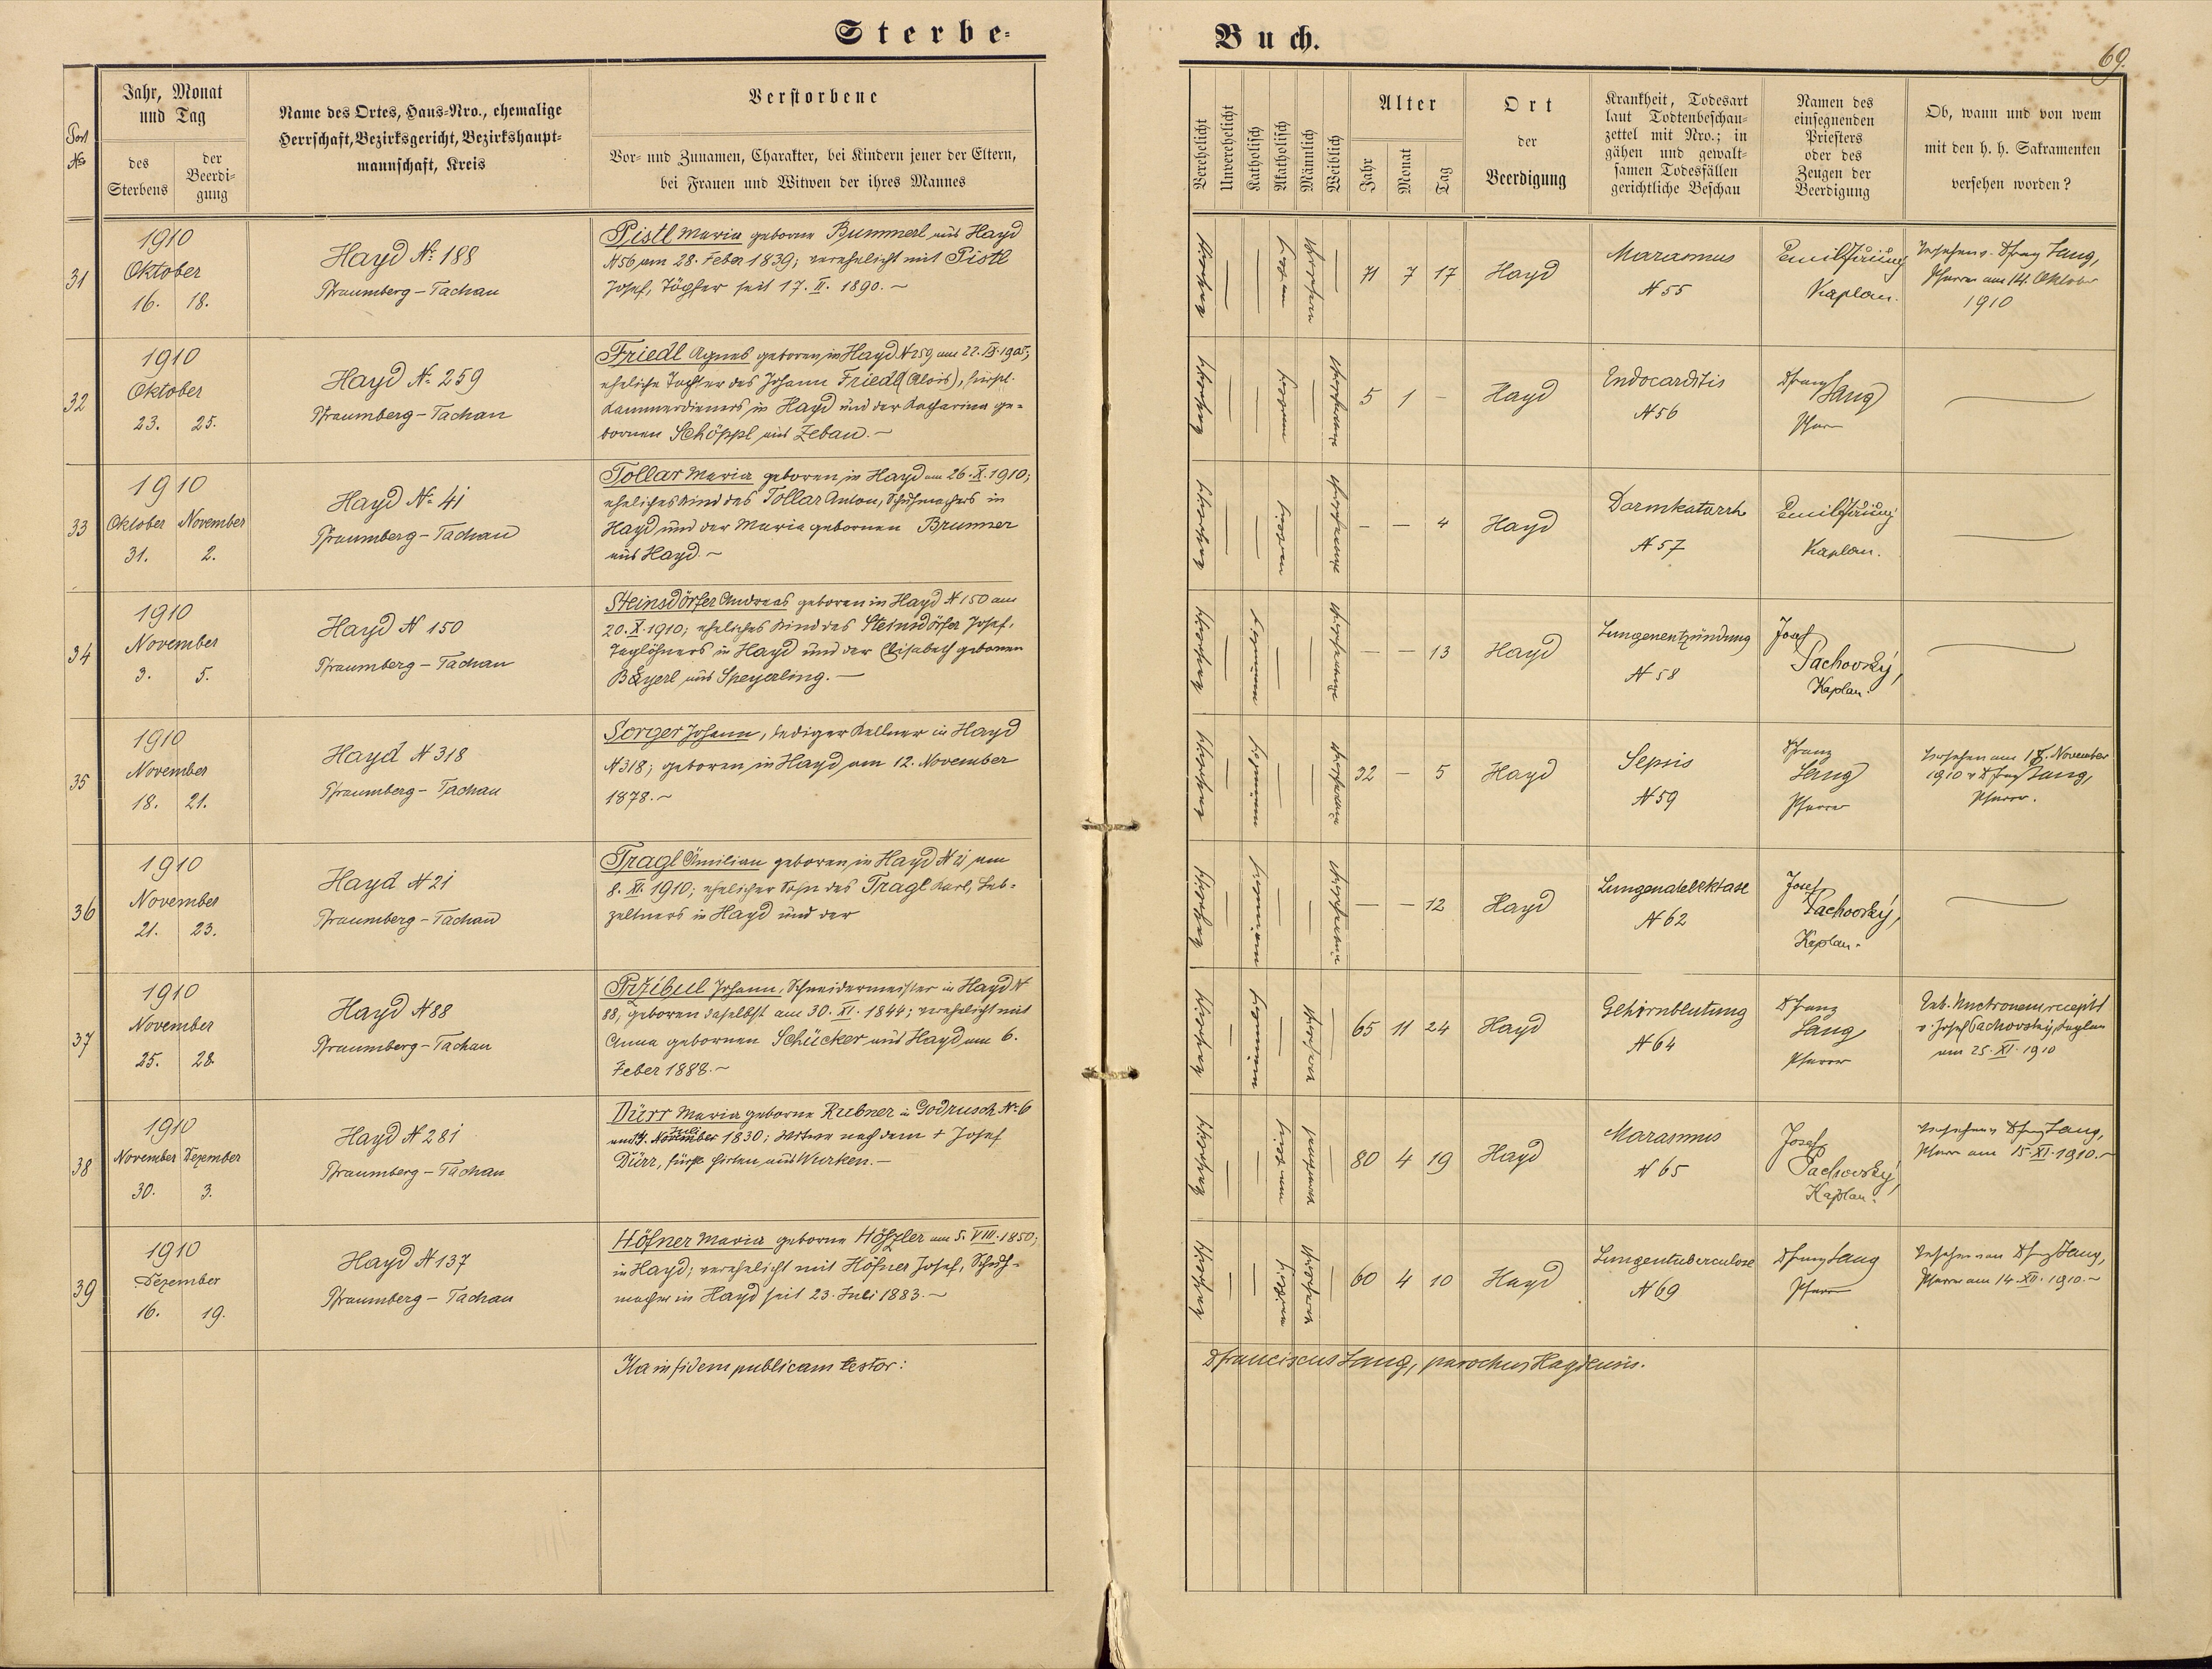 Sterbe-
Buch.
69.
Fort No
Jahr, Monat
und Tag
des
Sterbens
der
Beerdi-
gung
Name des Ortes, Haus-Nro., ehemalige
Herrschaft, Bezirksgericht, Bezirkshaupt-
mannschaft, Kreis
Verstorbene
Vor- und Zunamen, Charakter, bei Kindern jener der Eltern,
bei Frauen und Witwen der ihres Mannes
Verehelicht
Unverehelicht
Katholisch
Akatholisch
Männlich
Weiblich
Alter
Jahr
Monat
Tag
Ort
der
Beerdigung
Krankheit, Todesart
laut Todtenbeschau-
zettel mit Nro.; in
gähen und gewalt-
samen Todesfällen
gerichtliche Beschau
Namen des
einsegnenden
Priesters
oder des
Zeugen der
Beerdigung
Ob, wann und von wem
mit den h. h. Sakramenten
versehen worden?
31
1910
Oktober
16. 18.
Hayd No 188
Pfraumberg - Tachau
Pistl Maria geborne Bummerl aus Hayd
N 56 am 28. Feber 1839; verehelicht mit Pistl
Josef, Töpfer seit 17. II. 1890. ~
71 7 17
Hayd
Marasmus
N 55
Kaplan.
Lang,
Pfarrer am 14. Oktober
1910
32
1910
Oktober
23. 25.
Hayd No 259
Pfraumberg - Tachau
Friedl Agnes geboren in Hayd N 259 am 22. IX. 1905;
eheliche Tochter des Johann Friedl (Alois), fürstl.
Kammerdieners in Hayd und der Katharina ge-
bornen Schöppl aus Zebau. ~
5 1 -
Hayd
Endocarditis
N 56
Lang
Pfarrer
33
1910
Oktober November
31. 2.
Hayd No 41
Pfraumberg - Tachau
Tollar Maria geboren in Hayd am 26. X. 1910;
eheliches Kind des Tollar Anton, Schuhmachers in
Hayd und der Maria gebornen Brunner
aus Hayd. ~
- - 4
Hayd
Darmkatarrh
N 57
Kaplan.
34
1910
November
3. 5.
Hayd N 150
Pfraumberg - Tachau
Steinsdörfer Andreas geboren in Hayd N 150 am
20. X. 1910; eheliches Kind des Steinsdörfer Josef,
Taglöhners in Hayd und der Elisabeth gebornen
Bayerl aus Speyerling. -
- - 13
Hayd
Lungenentzündung
N 58
Josef
Pachovský,
Kaplan.
35
1910
November
18. 21.
Hayd N 318
Pfraumberg - Tachau
Sorger Johann, lediger Kellner in Hayd
N 318; geboren in Hayd am 12. November
1878. ~
32 - 5
Hayd
Sepsis
N 59
Franz
Lang
Pfarrer
Versehen am November
1910 v Lang,
Pfarrer.
36
1910
November
21. 23.
Hayd N 21
Pfraumberg - Tachau
Tragl Ämilian geboren in Hayd N 21 am
8. XI. 1910; ehelicher Sohn des Tragl Karl, Leb-
zeltners in Hayd und der
- - 12
Hayd
Lungenatelektase
N 62
Josef
Pachovský,
Kaplan.
37
1910
November
25. 28.
Hayd N 88
Pfraumberg - Tachau
Przibul Johann, Schneidermeister in Hayd N
88, geboren daselbst am 30. XI. 1844; verehelicht mit
Anna gebornen Schücker aus Hayd am 6.
Feber 1888. ~
65 11 24
Hayd
Gehirnblutung
N 64
Franz
Lang
Pfarrer
v Josef Pachovský, Kaplan
am 25. XI. 1910
38
1910
November Dezember
30. 3.
Hayd N 281
Pfraumberg - Tachau
Dürr Maria geborne Rubner in Godrusch No 6
Juli
November 1830; Witwe nach dem † Josef
Dürr, fürstl. Hirten aus Wurken. -
80 4 19
Hayd
Marasmus
N 65
Josef
Pachovský,
Kaplan.
Lang,
Pfarrer am 15. XI. 1910. ~
39
1910
Dezember
16. 19.
Hayd N 137
Pfraumberg - Tachau
Höfner Maria geborne Hötzler am 5. VIII. 1850;
in Hayd; verehelicht mit Höfner Josef, Schuh-
macher in Hayd seit 23. Juli 1883. ~
60 4 10
Hayd
Lungentuberculose
N 69
Lang
Pfarrer
Versehen von Lang,
Pfarrer am 14. XII. 1910. ~
Ita in fidem publicam testor:
Franciscus Lang, parochus Haydensis.